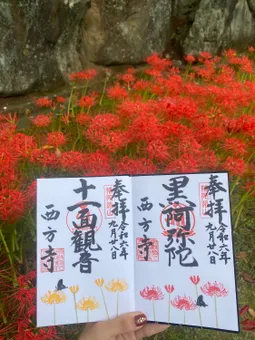 奉拝
令和六年
九月廿八日
黒阿弥陀
西方寺
奉拝
令和六年
九月廿八日
十一面観音
西方寺